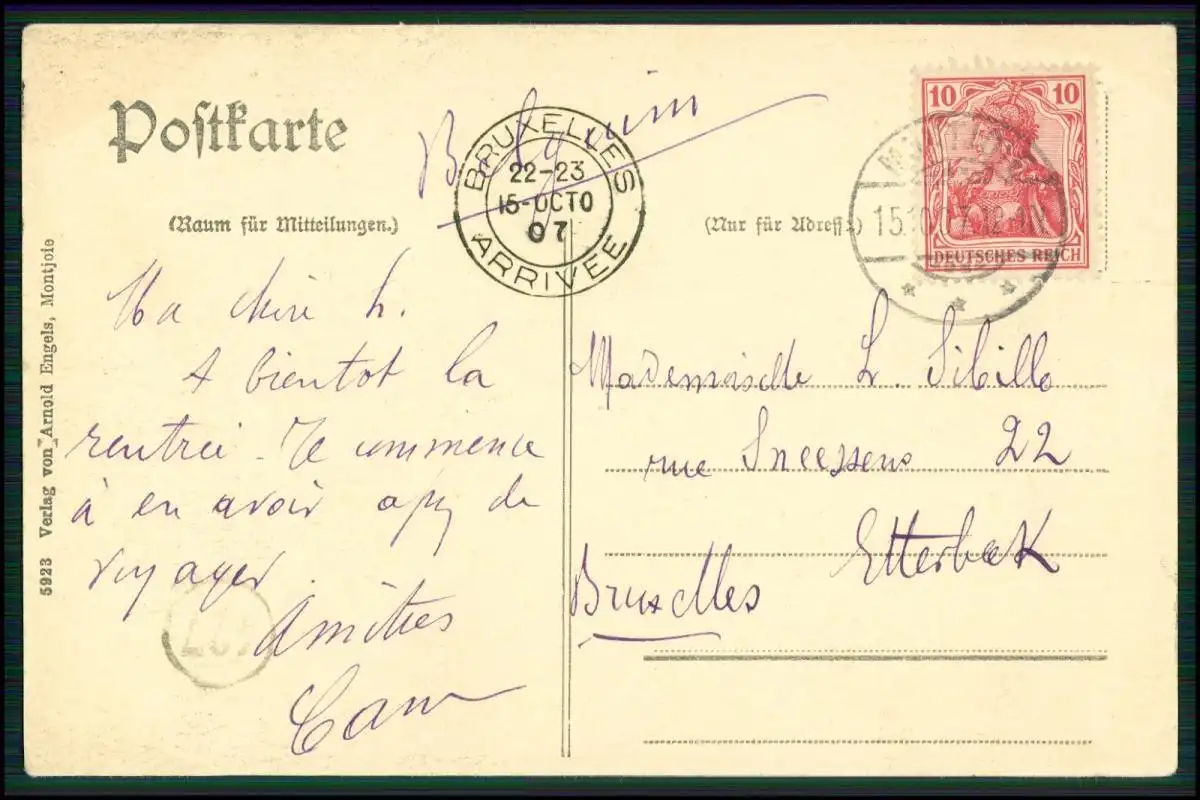 Postkarte
Belgium
BRUXELLES
22-23
15-OCTO
07
ARRIVÉE
10 10
DEUTSCHES REICH
15.10.07.12-1N
(Raum für Mitteilungen.)
(Nur für Adresse)
5923 Verlag von Arnold Engels, Montjoie
Ma chère L.
A bientot la
rentrée. Je commence
à en avoir assez de
voyager.
Amitiés
Mademoiselle L. Sibille
rue Sneessens 22
Etterbeek
Bruxelles